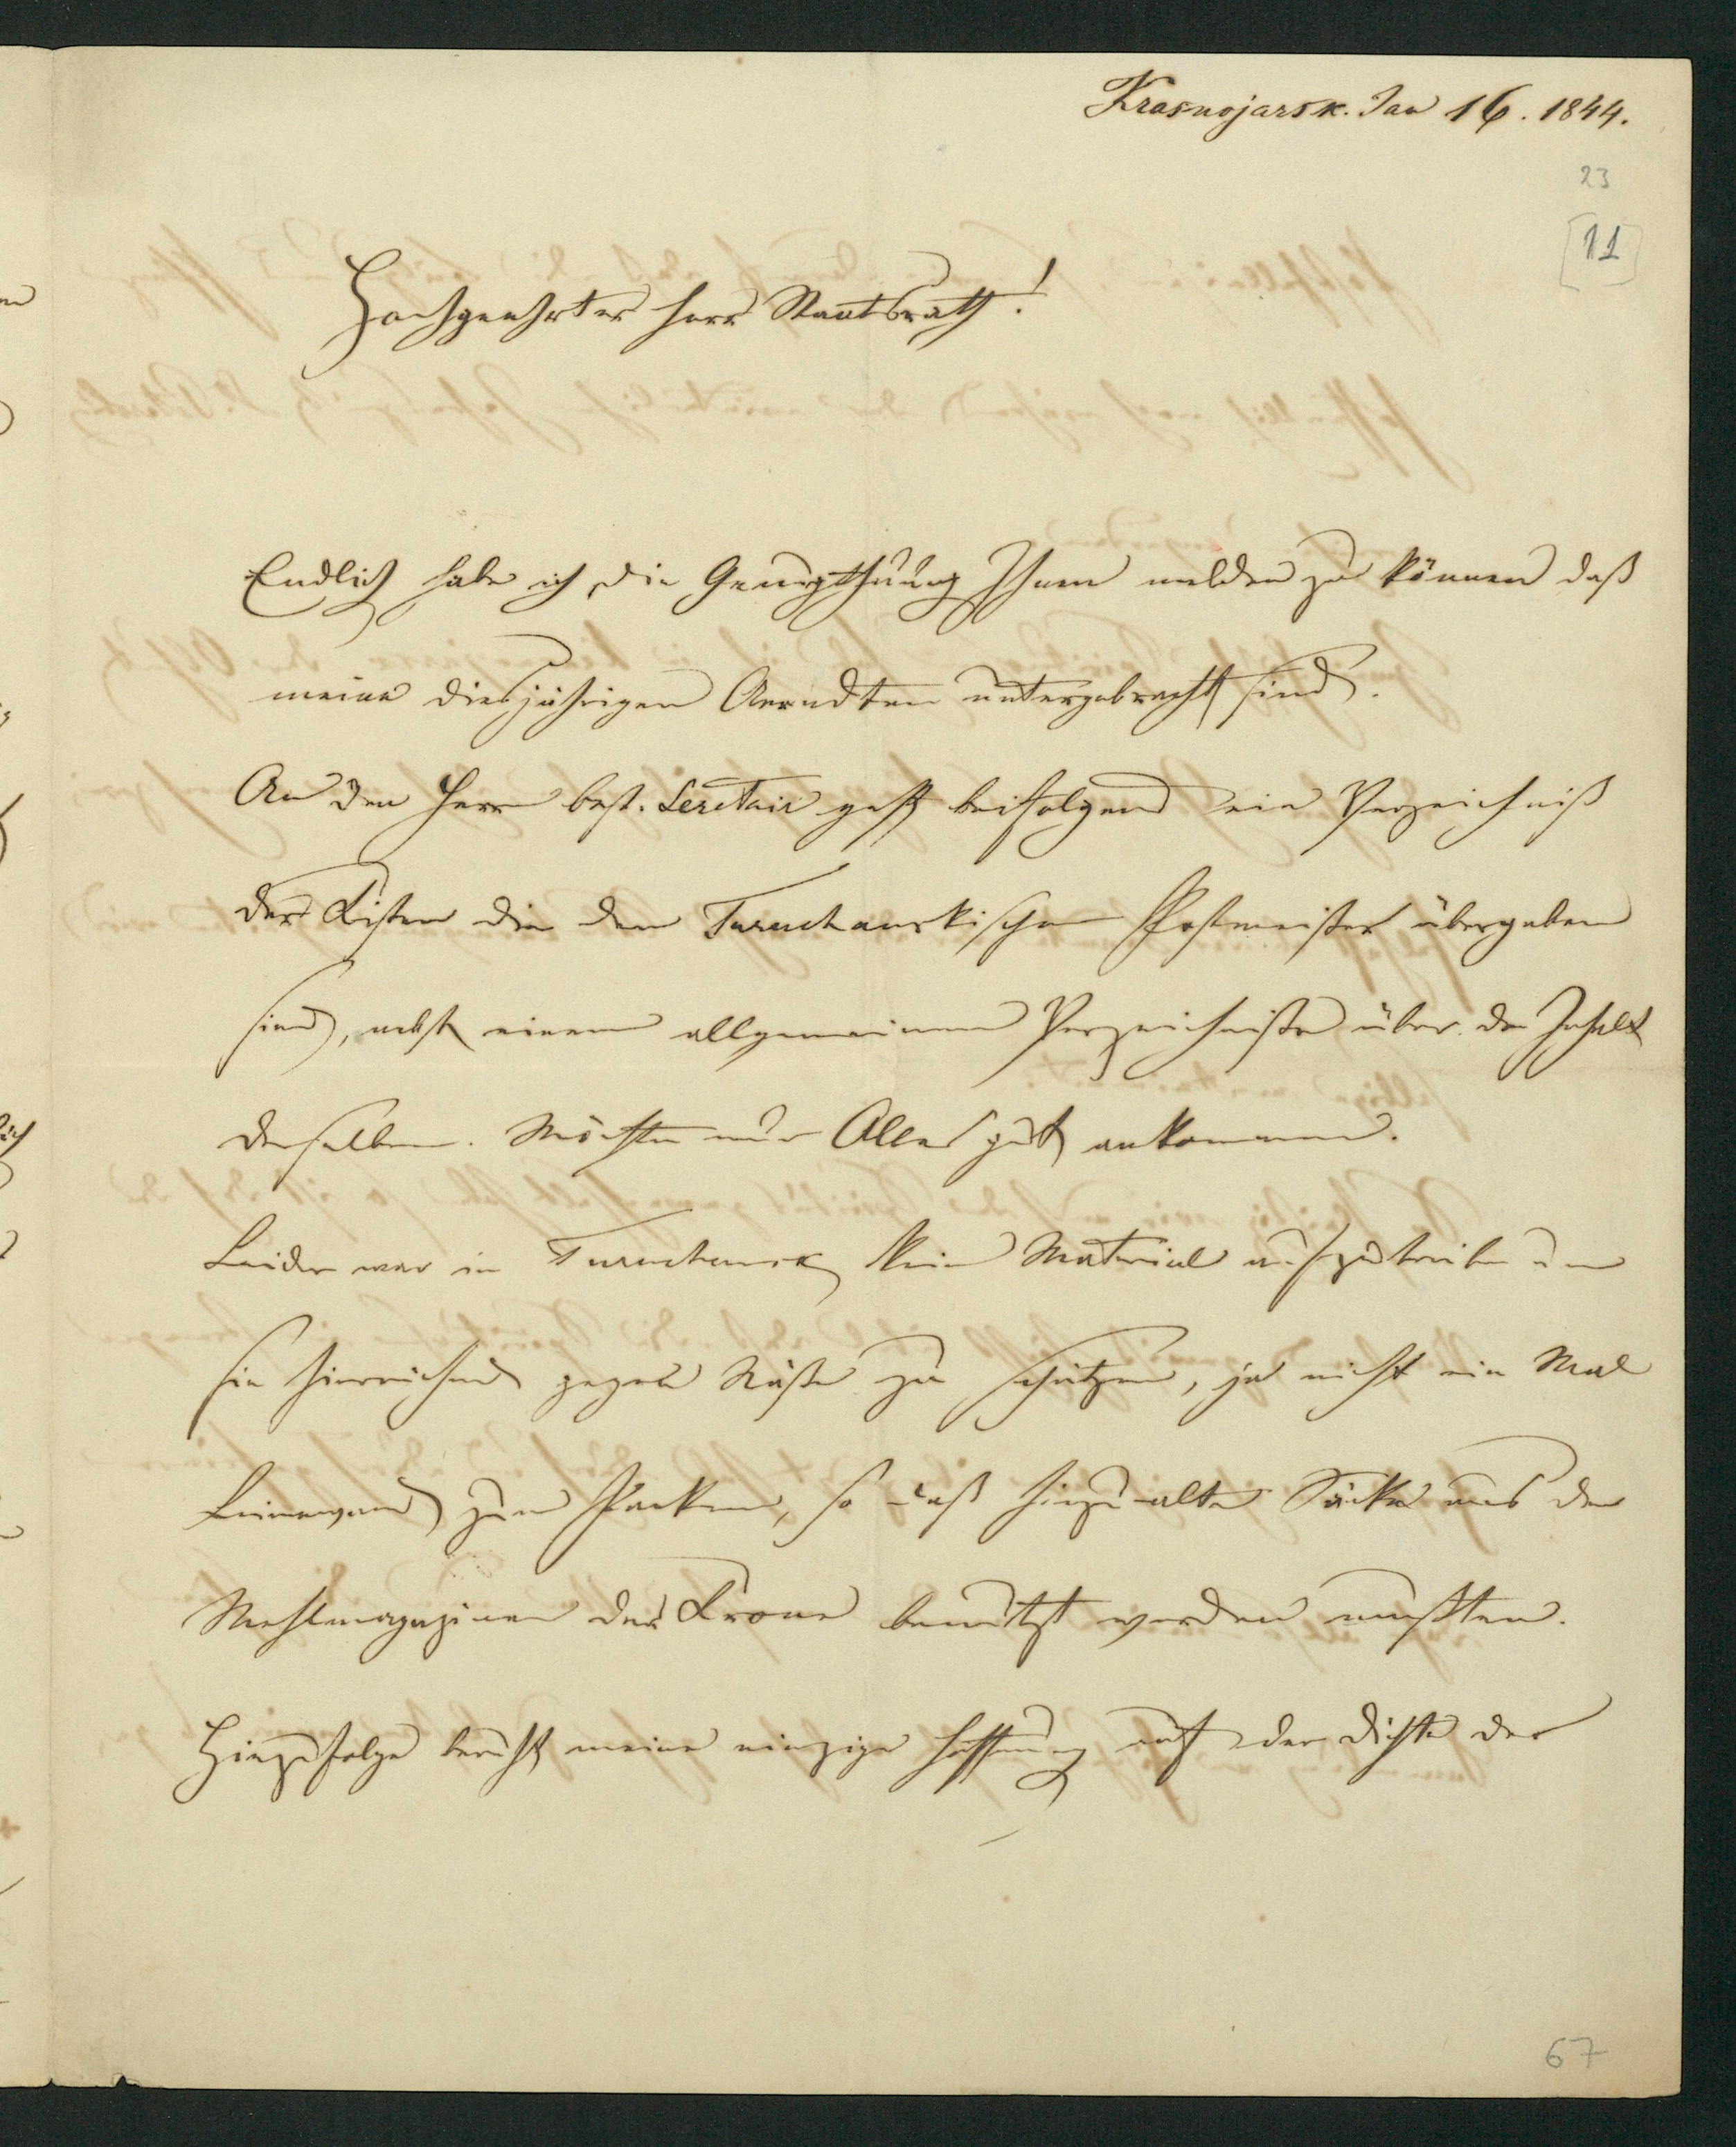 Krasnojarsk. Jan 16. 1844.
23
[11]
Hochgeehrter Herr Staatsrath!
Endlich habe ich die Genugthuung Ihnen melden zu können daß
meine diesjährigen Aerndten untergebracht sind.
An den Herrn best. Secretair geht beifolgend ein Verzeichniß
der Kisten die dem Turuchanskischen Postmeister übergeben
sind, nebst einem allgemeinen Verzeichnisse über den Inhalt
derselben. Möchte nur Alles gut ankommen.
Leider war in Turuchansk kein Material aufzutreiben um
sie hinreichend gegen Nässe zu schützen, ja nicht ein Mal
Leinewand zum Packen, so daß hiezu alte Säcke aus den
Mehlmagazinen der Krone benutzt werden mußten.
Hiezufolge beruht meine einzige Hoffnung auf der Dichte der
67